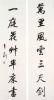 萬里風雲三尺劍
一庭花草半床書